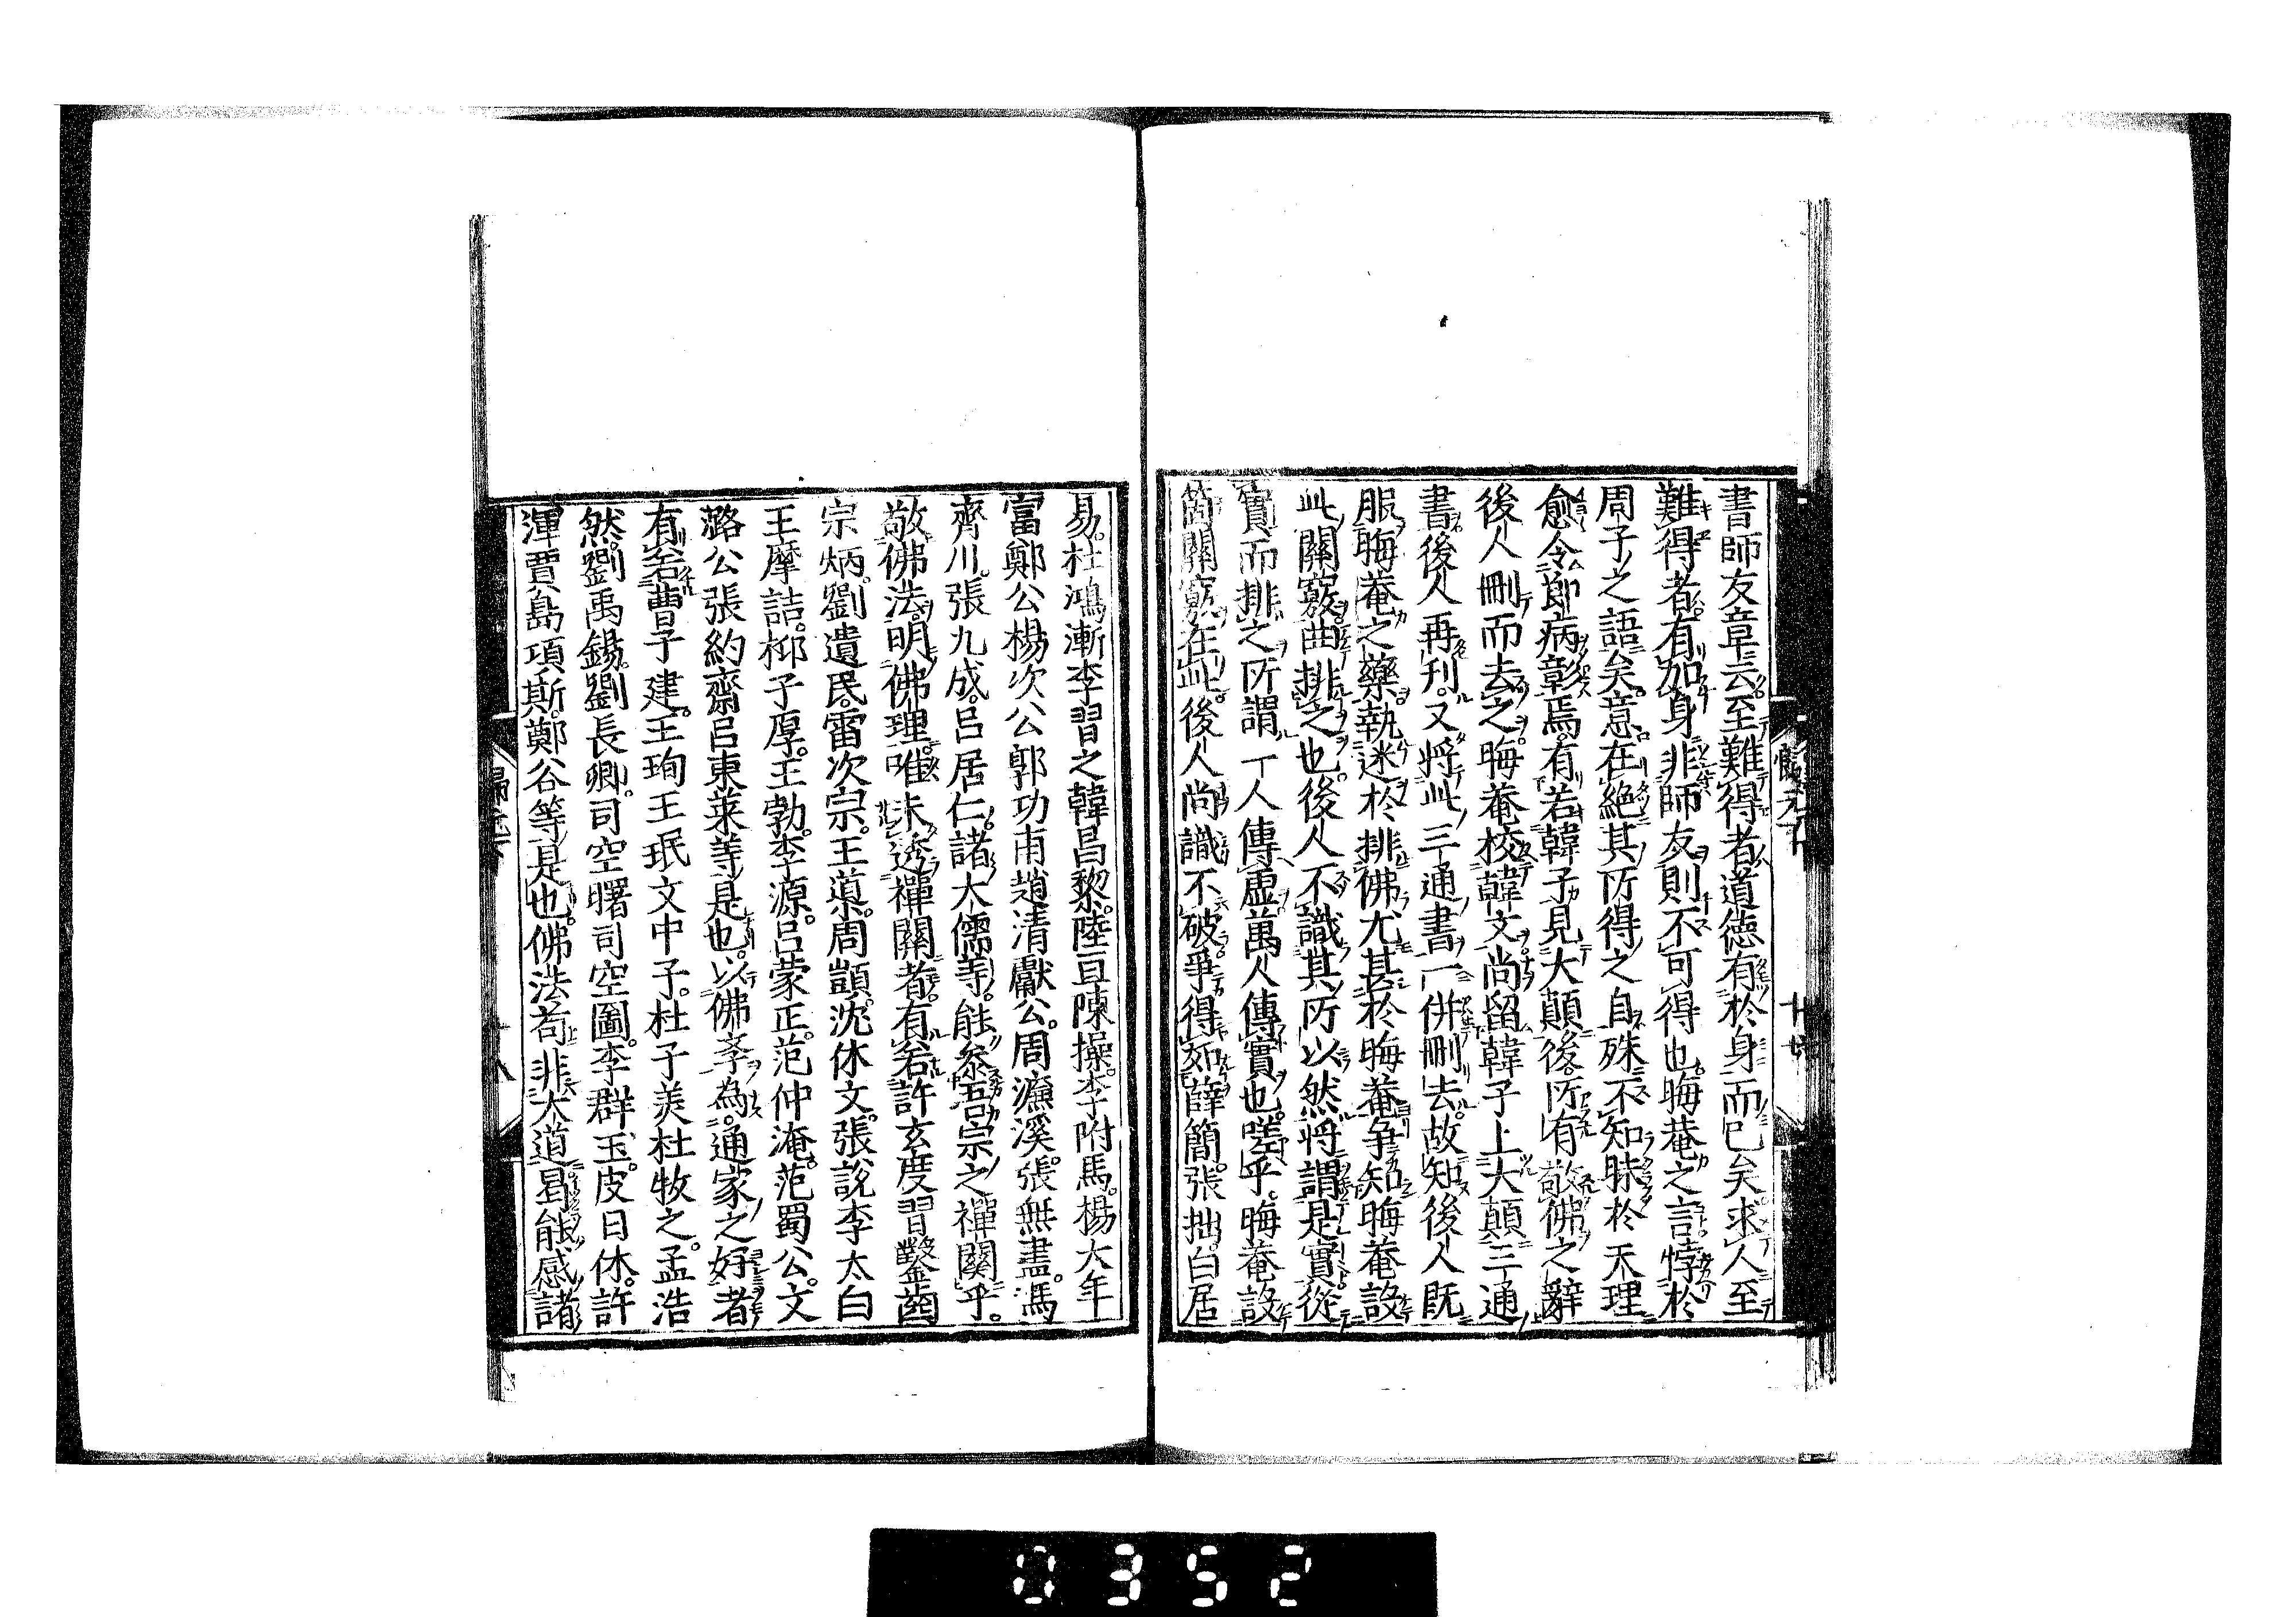 書師友章云至難得者道德有於身而已矣求人至
難得者有加身非師友則不可得也晦菴之言悖於
周子之語矣意在絕其所得之自殊不知昧於天理
愈令節病彰焉有若韓子見大顛後所有敬佛之辭
後人刪而去之晦菴校韓文尚留韓子上大顛三通
書後人再刋又將此三通書一併刪去故知後人既
服晦菴之藥執迷於排佛尤甚於晦菴爭知晦菴設
此關竅曲排之也後人不識其所以然將謂是實從
實而排之所謂一人傳虛萬人傳實也嗟乎晦菴設
箇關竅在此後人尚識不破爭得如薛簡張拙白居
易杜鴻漸李習之韓昌黎陸亘陳操李附馬楊大年
富鄭公楊次公郭功甫趙清獻公周濂溪張無盡馮
齊川張九成呂居仁諸大儒等能叅吾宗之禪關乎
敬佛法明佛理唯未透禪關者有若許玄度習鑿齒
宗炳劉遺民雷次宗王導周顗沈休文張說李太白
王摩詰柳子厚王勃李源呂蒙正范仲淹范蜀公文
潞公張約齋呂東萊等是也以佛孝為通家之好者
有若曹子建王珣王珉文中子杜子美杜牧之孟浩
然劉禹錫劉長卿司空曙司空圖李群玉皮日休許
渾賈島項斯鄭谷等是也佛法苟非大道曷能感諸
歸元下
十八
0352